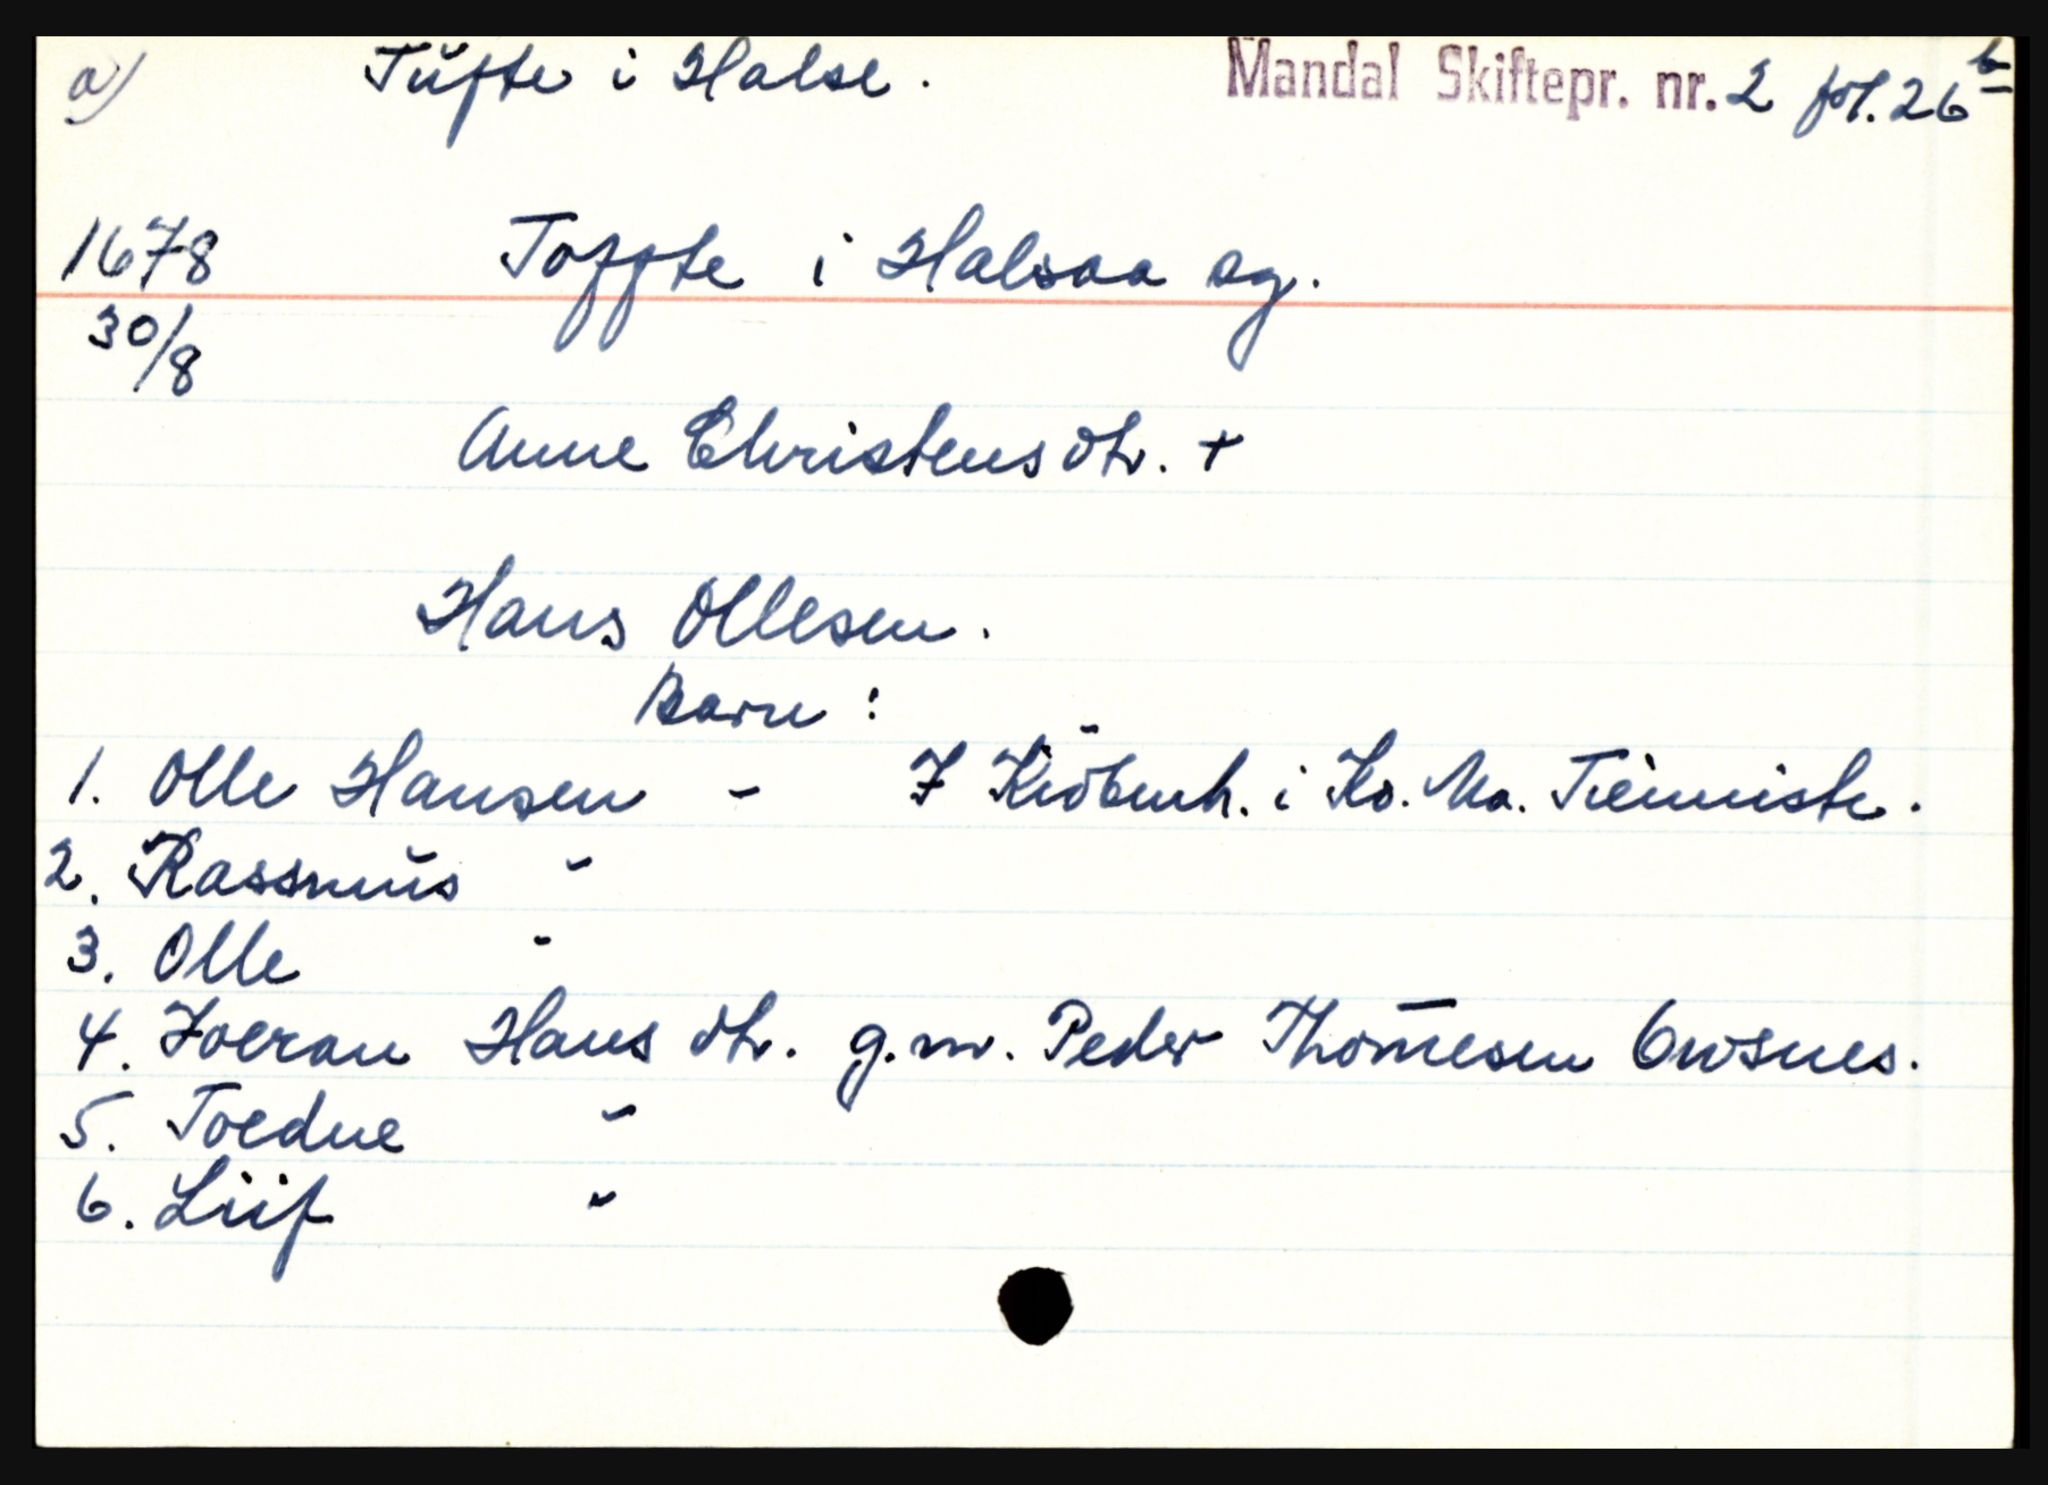 a) Tŭfte i Halse. Mandal Skiftepr. nr. 2 fol. 26 b
1678 Toffte i Halsaa sg.
30/8
Anne Christensdtr. +
Hans Ollesen.
Barn:
1. Olle Hansen - I Kiöbenh. i Ko. Ma. Tieniiste.
2. Rassmŭs "
3. Olle "
4. Joeran Hans dtr. g.m. Peder Thom̄esen
5. Toedne "
6. Liif "